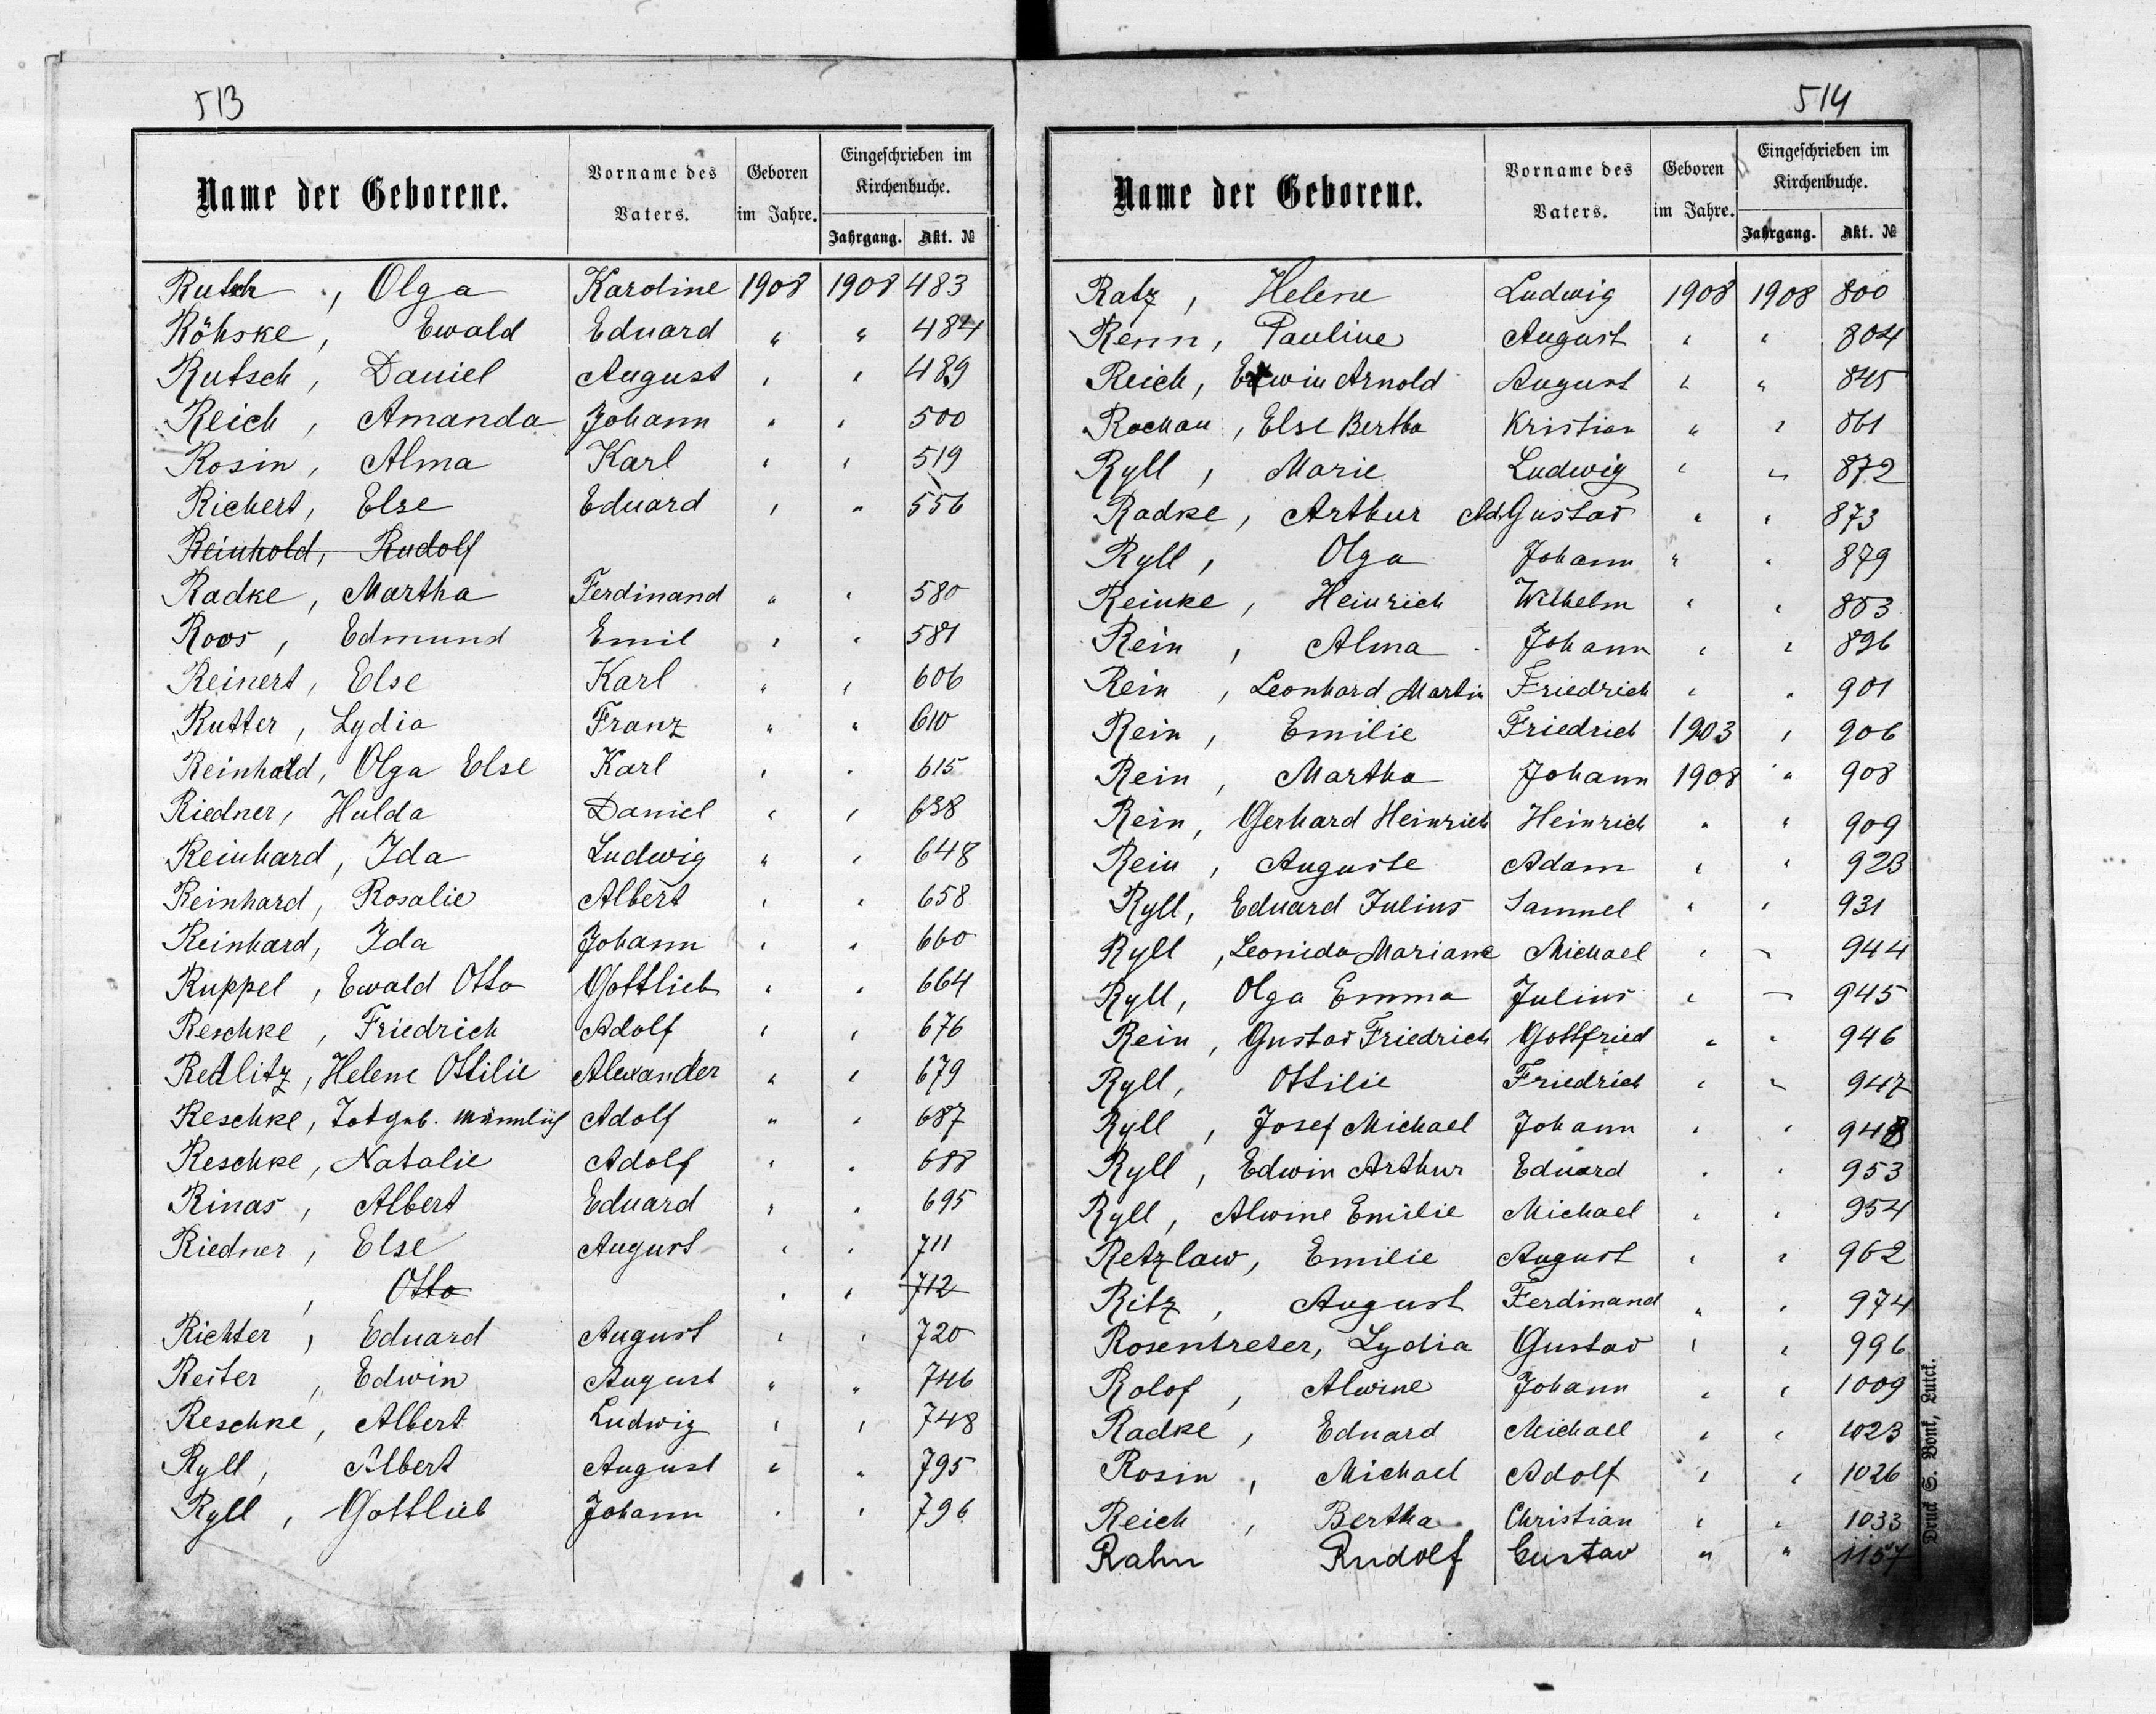 513
Name der Geborene. Vorname des Vaters. Geboren im Jahre. Eingeschrieben im Kirchenbuche. Jahrgang. Akt. №
Rutsch, Olga Karoline 1908 1908 483
Röhske, Ewald Eduard " " 484
Rutsch, Daniel August " " 489
Reich, Amanda Johann " " 500
Rosin, Alma Karl " " 519
Richert, Else Eduard " " 556
Reinhold, Rudolf
Radke, Martha Ferdinand " " 580
Roos, Edmund Emil " " 581
Reinert, Else Karl " " 606
Rutter, Lydia Franz " " 610
Reinhold, Olga Else Karl " " 615
Riedner, Hulda Daniel " " 638
Reinhard, Ida Ludwig " " 648
Reinhard, Rosalie Albert " " 658
Reinhard, Ida Johann " " 660
Ruppel, Ewald Otto Gottlieb " " 664
Reschke, Friedrich Adolf " " 676
Redlitz, Helene Ottilie Alexander " " 679
Reschke, Totgeb. männlich Adolf " " 687
Reschke, Natalie Adolf " " 688
Rinas, Albert Eduard " " 695
Riedner, Else August " " 711
, Otto " " 712
Richter, Eduard August " " 720
Reiter, Edwin August " " 746
Reschke, Albert Ludwig " " 748
Ryll, Albert August " " 795
Ryll, Gottlieb Johann " " 796
514
Name der Geborene. Vorname des Vaters. Geboren im Jahre. Eingeschrieben im Kirchenbuche. Jahrgang. Akt. №
Ratz, Helene Ludwig 1908 1908 800
Renn, Pauline August " " 804
Reich, Erwin Arnold August " " 845
Rochau, Else Bertha Kristian " " 861
Ryll, Marie Ludwig " " 872
Radke, Arthur Ad. Gustav " " 873
Ryll, Olga Johann " " 879
Reinke, Heinrich Wilhelm " " 883
Rein, Alma Johann " " 896
Rein, Leonhard Martin Friedrich " " 901
Rein, Emilie Friedrich 1903 " 906
Rein, Martha Johann 1908 " 908
Rein, Gerhard Heinrich Heinrich " " 909
Rein, Auguste Adam " " 923
Ryll, Eduard Julius Samuel " " 931
Ryll, Leonida Mariane Michael " " 944
Ryll, Olga Emma Julius " " 945
Rein, Gustav Friedrich Gottfried " " 946
Ryll, Ottilie Friedrich " " 947
Ryll, Josef Michael Johann " " 948
Ryll, Edwin Arthur Eduard " " 953
Ryll, Alwine Emilie Michael " " 954
Retzlaw, Emilie August " " 962
Ritz, August Ferdinand " " 974
Rosentreter, Lydia Gustav " " 996
Rolof, Alwine Johann " " 1009
Radke, Eduard Michael " " 1023
Rosin, Michael Adolf " " 1026
Reich, Bertha Christian " " 1033
Rahn Rudolf Gustav " " 1157
Druck S. Bonk, Lutck.